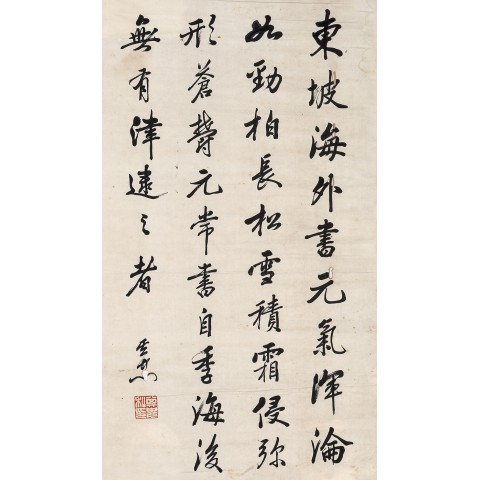 東坡海外書元氣渾淪
如勁柏長松雪積霜侵弥
形蒼鬱元常書自季海後
無有津逮之者